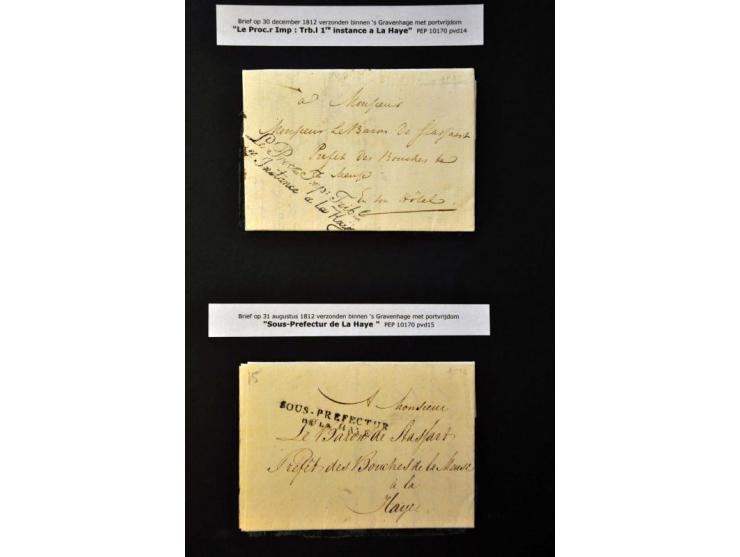 Brief op 30 december 1812 verzonden binnen 's Gravenhage met portvrijdom
"Le Proc.r Imp : Trb.l 1re instance a La Haye" PEP 10170 pvd14
à Monsieur
Monsieur Le Baron de Stassart
Prefet des Bouches de
la Meuse
En son Hôtel
Le Proc. Imp: Trib.
Instance a la Haye
Brief op 31 augustus 1812 verzonden binnen 's Gravenhage met portvrijdom
"Sous-Prefectur de La Haye " PEP 10170 pvd15
15
A Monsieur
SOUS-PREFECTUR
DE LA HAYE
Le Baron de Stassart
Préfet des Bouches de la Meuse
à la
Haye